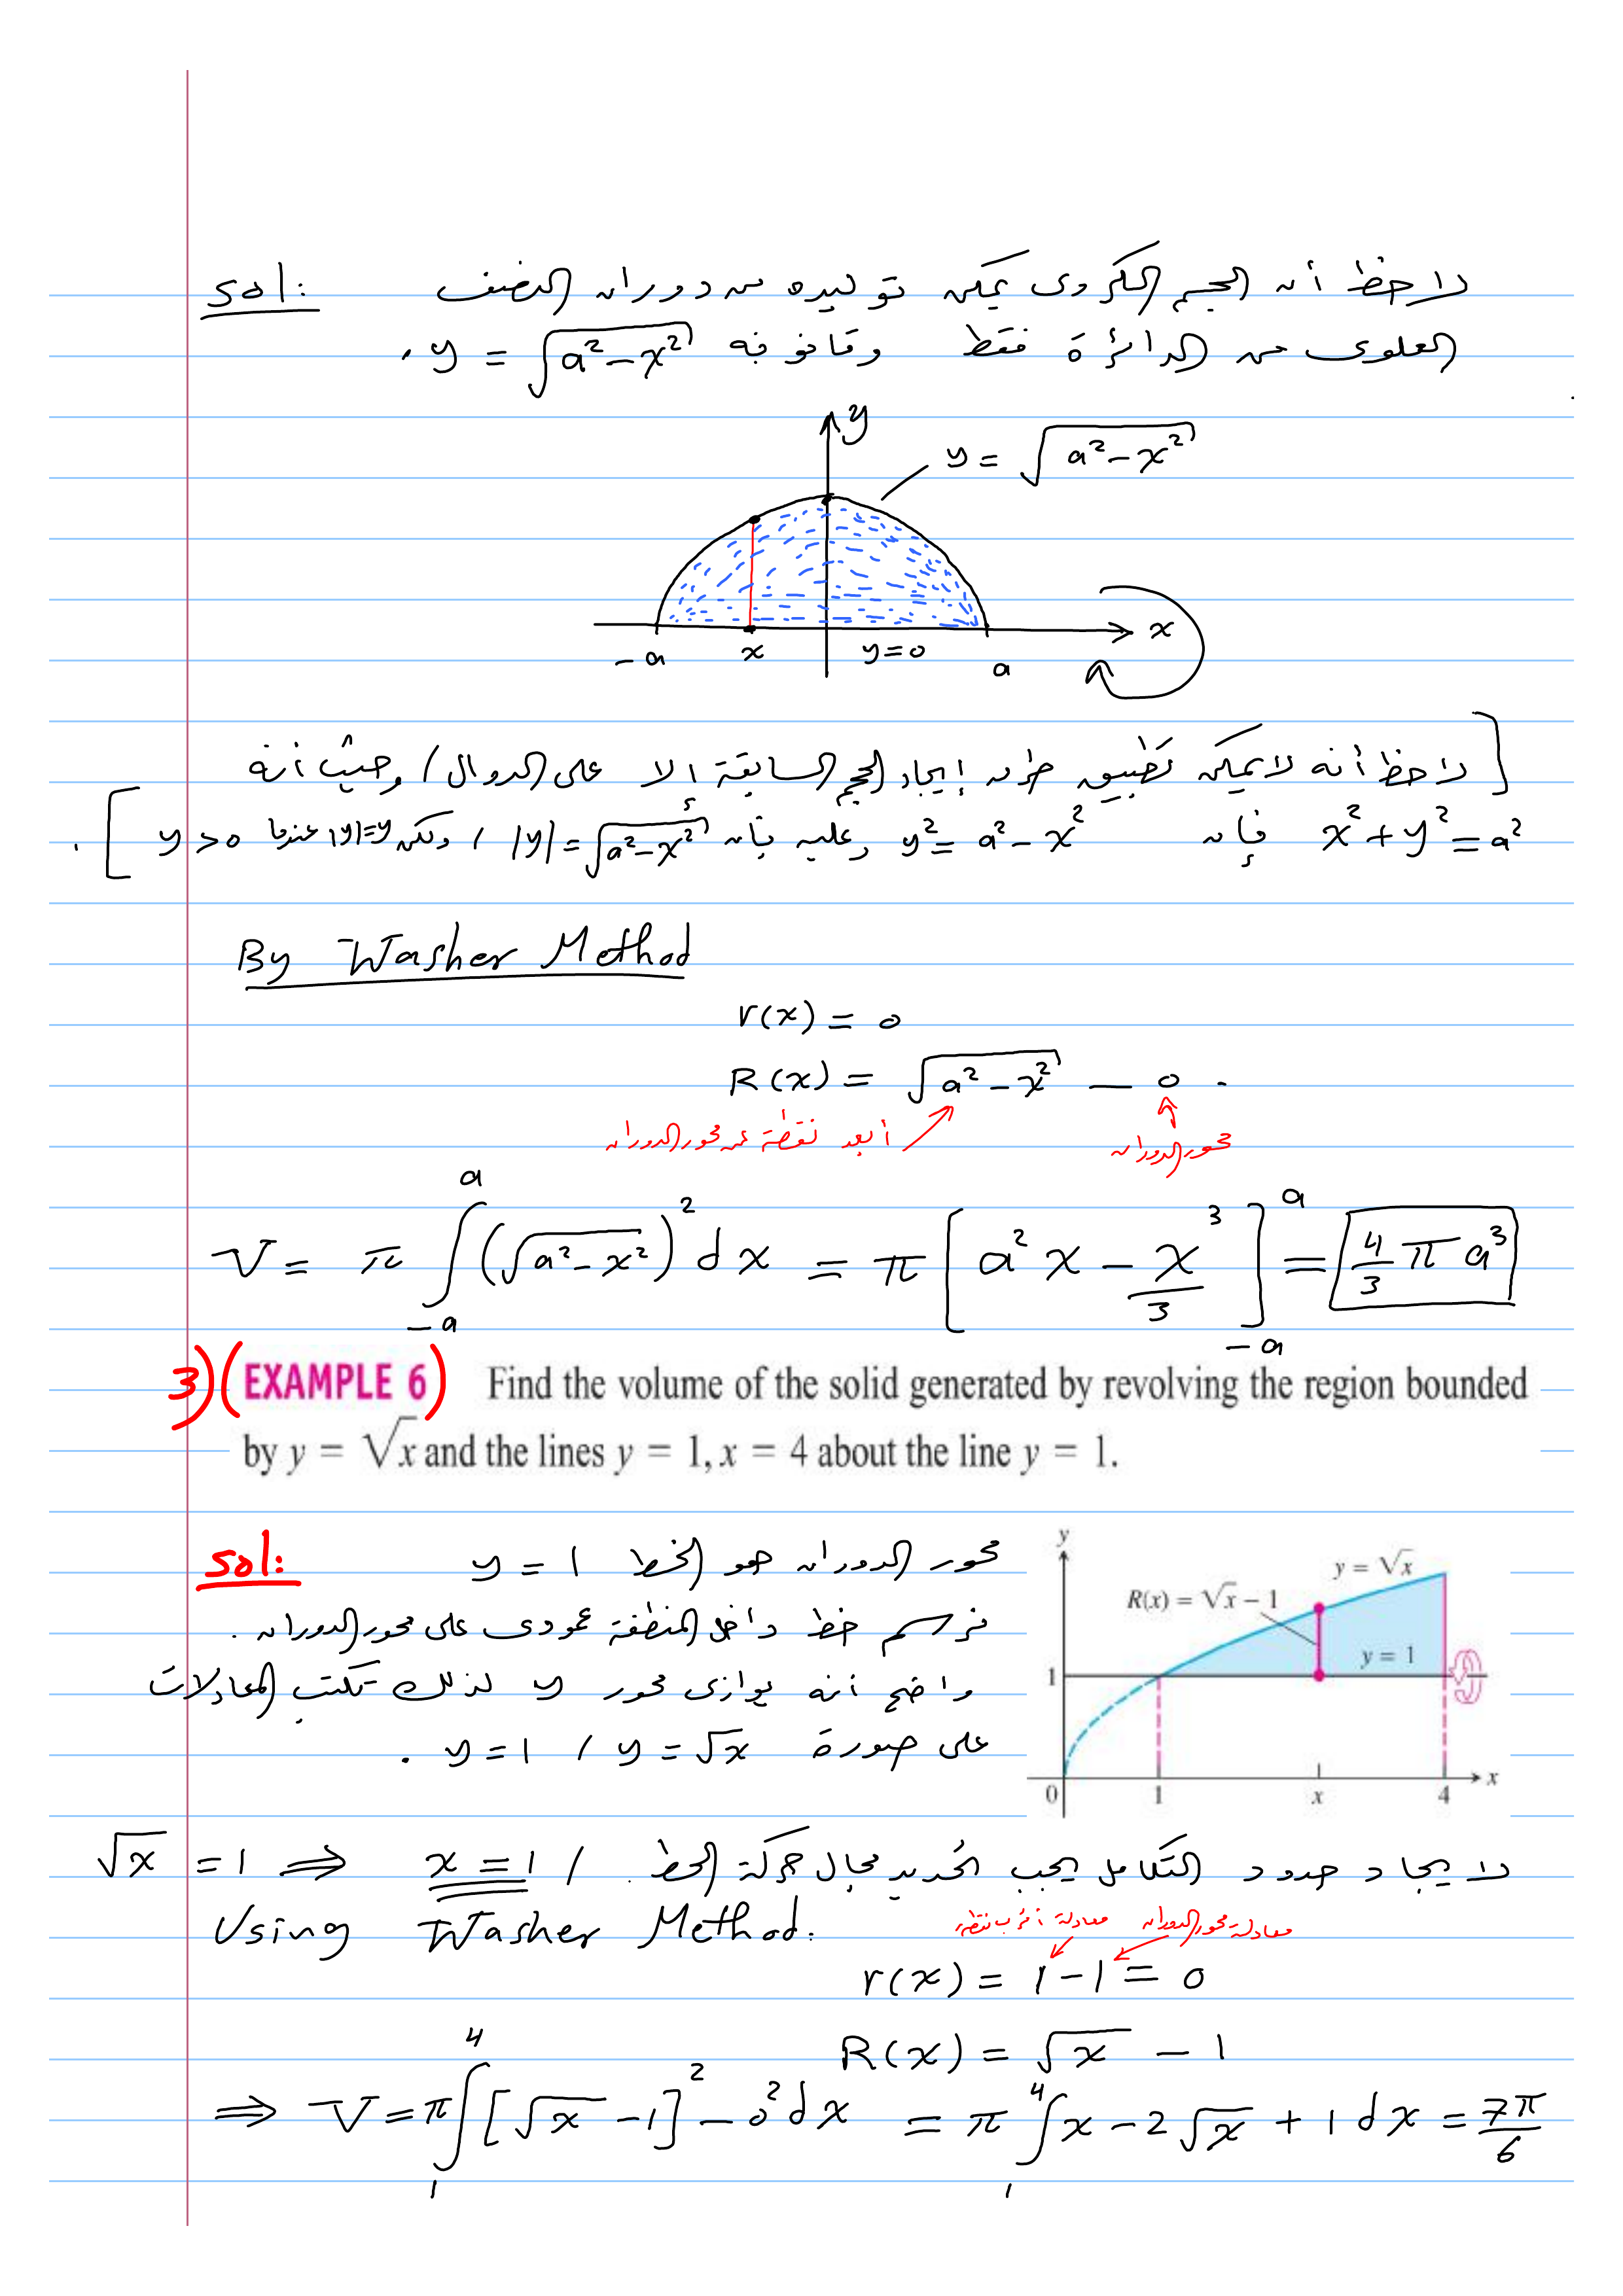 sol: لاحظ أن الحجم الكروى يمكن توليده من دوران النصف
العلوى من الدائرة فقط وقانونه y = √(a² − x²) .
y
y = √(a² − x²)
−a x y=0 a x
[ لاحظ أنه لا يمكن تطبيق طرق إيجاد الحجم السابقة إلا على الدوال ، وحيث أنه
x² + y² = a² فإن y² = a² − x² وعليه فإن |y| = √(a² − x²) ، ولكن |y|=y عندما y > 0 ] .
By Washer Method
r(x) = 0
R(x) = √(a² − x²) − 0 .
أبعد نقطة عن محور الدوران محور الدوران
V = π ∫_{−a}^{a} (√(a² − x²))² dx = π [a² x − x³/3]_{−a}^{a} = 4/3 π a³
3) (EXAMPLE 6) Find the volume of the solid generated by revolving the region bounded
by y = √x and the lines y = 1, x = 4 about the line y = 1.
sol: محور الدوران هو الخط y = 1
نرسم خط داخل المنطقة عمودى على محور الدوران .
واضح أنه يوازى محور y لذلك نكتب المعادلات
على صورة y = √x , y = 1 .
y
y = √x
R(x) = √x − 1
y = 1
1
0 1 x 4 x
لايجاد حدود التكامل يجب تحديد مجال حركة الخط . , √x = 1 ⟹ x = 1
Using Washer Method.
معادلة محور الدوران معادلة أقرب نقطة
r(x) = 1 − 1 = 0
R(x) = √x − 1
⟹ V = π ∫_{1}^{4} [√x − 1]² − 0² dx = π ∫_{1}^{4} x − 2√x + 1 dx = 7π/6